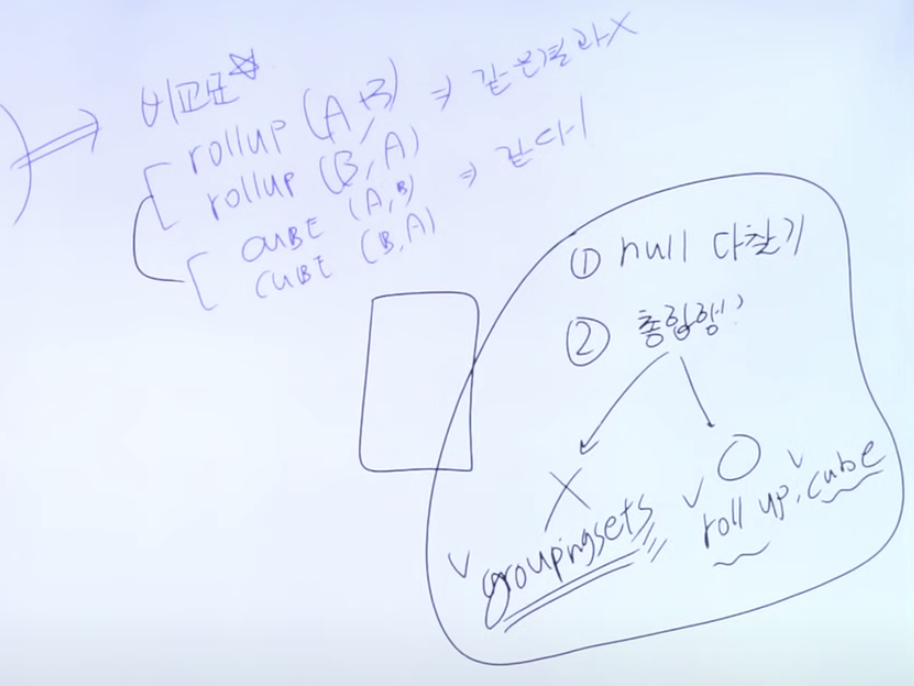 비교표☆
rollup (A,B) ⇒ 같은결과X
rollup (B,A)
CUBE (A,B) ⇒ 같다!
CUBE (B,A)
① null 다찾기
② 총합행?
X O
groupingsets roll up, cube